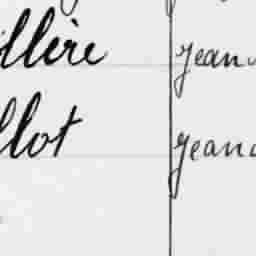 llère jean
llot jean